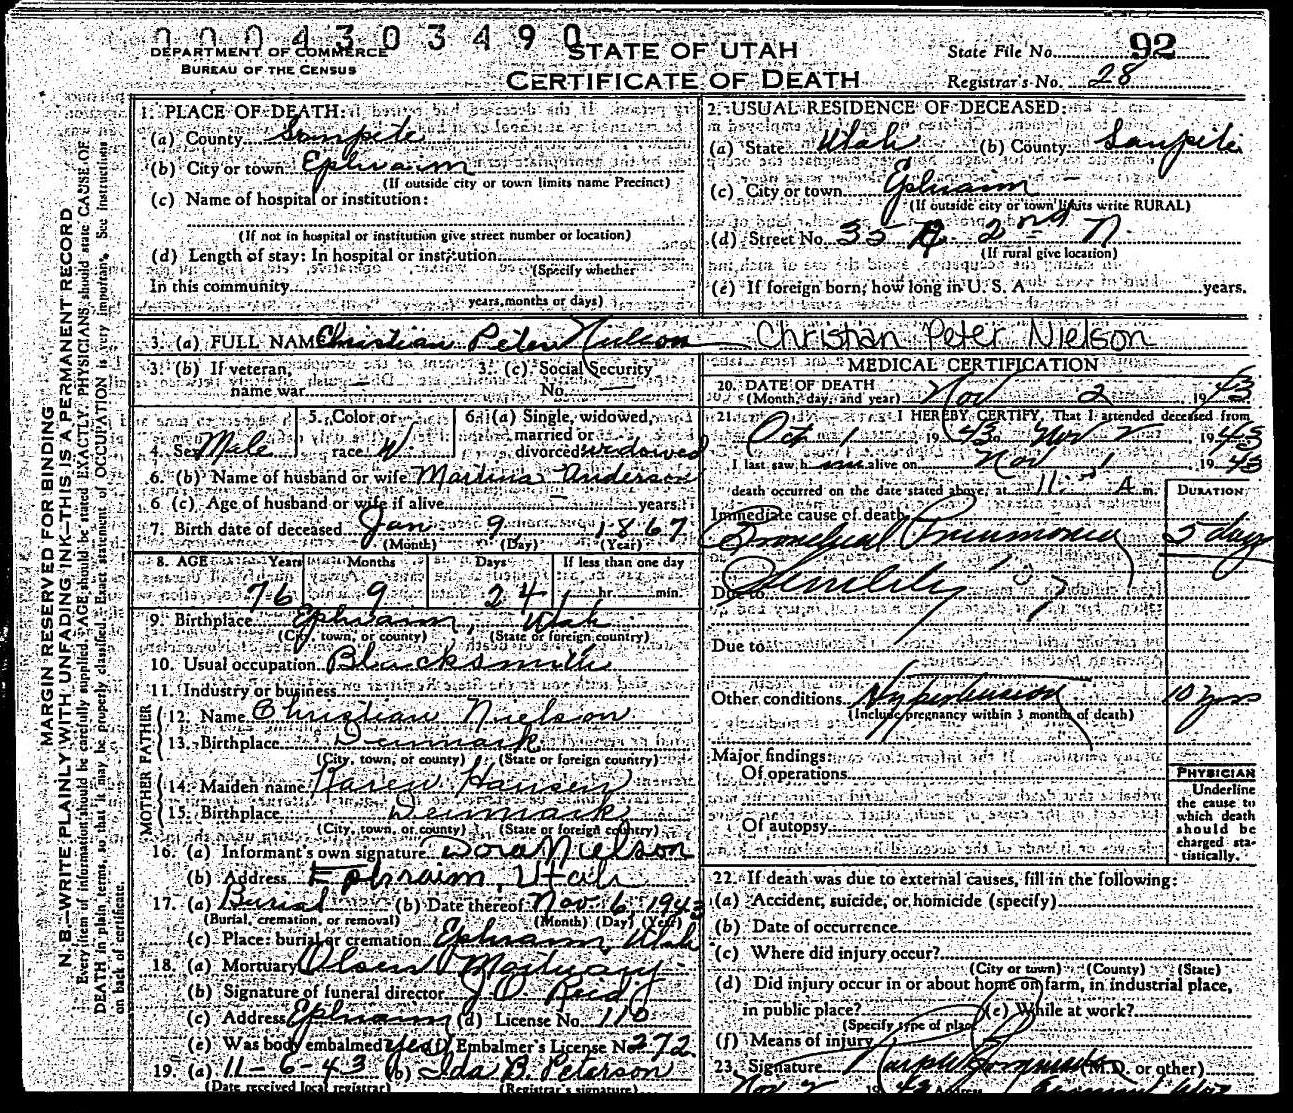 0 0 0 4 3 0 3 4 9 0
DEPARTMENT OF COMMERCE
BUREAU OF THE CENSUS
STATE OF UTAH
CERTIFICATE OF DEATH
State File No. 92
Registrar's No. 28
MARGIN RESERVED FOR BINDING
N. B.—WRITE PLAINLY WITH UNFADING INK—THIS IS A PERMANENT RECORD
Every item of information should be carefully supplied. AGE should be stated EXACTLY. PHYSICIANS should state CAUSE OF
DEATH in plain terms, so that it may be properly classified. Exact statement of OCCUPATION is very important. See instructions
on back of certificate.
1. PLACE OF DEATH:
(a) County Sanpete
(b) City or town Ephraim
(If outside city or town limits name Precinct)
(c) Name of hospital or institution:
(If not in hospital or institution give street number or location)
(d) Length of stay: In hospital or institution
(Specify whether
In this community
years, months or days)
2. USUAL RESIDENCE OF DECEASED
(a) State Utah (b) County Sanpete
(c) City or town Ephraim
(If outside city or town limits write RURAL)
(d) Street No. 35 2nd N.
(If rural give location)
(e) If foreign born, how long in U. S. A. years.
3. (a) FULL NAME Christian Peter Nielson Christian Peter Nielson
3. (b) If veteran,
name war —
3. (c) Social Security
No. —
4. Sex Male
5. Color or
race W.
6. (a) Single, widowed,
married or
divorced widowed
6. (b) Name of husband or wife Martina Anderson
6 (c) Age of husband or wife if alive — years
7. Birth date of deceased Jan 9 1867
(Month) (Day) (Year)
8. AGE Years Months Days If less than one day
76 9 24 hr. min.
9. Birthplace Ephraim, Utah
(City, town, or county) (State or foreign country)
10. Usual occupation Blacksmith
11. Industry or business
FATHER
12. Name Christian Nielson
13. Birthplace Denmark
(City, town, or county) (State or foreign country)
MOTHER
14. Maiden name Karen Hansen
15. Birthplace Denmark
(City, town, or county) (State or foreign country)
16. (a) Informant's own signature Dora Nielson
(b) Address Ephraim, Utah
17. (a) Burial (b) Date thereof Nov. 6, 1943
(Burial, cremation, or removal) (Month) (Day) (Year)
(c) Place: burial or cremation Ephraim, Utah
18. (a) Mortuary Olsen Mortuary
(b) Signature of funeral director
(c) Address Ephraim (d) License No. 110
(e) Was body embalmed yes (f) Embalmer's License No. 272
19. (a) 11-6-43 (b) Ida B. Peterson
(Date received local registrar) (Registrar's signature)
MEDICAL CERTIFICATION
20. DATE OF DEATH
(Month, day, and year) Nov 2 1943
21. I HEREBY CERTIFY, That I attended deceased from
Oct 1 1943 to Nov 2 1943
I last saw him alive on Nov 1 1943
death occurred on the date stated above, at 11 A m.
DURATION
Immediate cause of death
Bronchial Pneumonia 5 days
Due to Senility
Due to
Other conditions Hypertension 10 yrs
(Include pregnancy within 3 months of death)
Major findings:
Of operations
Of autopsy
PHYSICIAN
Underline
the cause to
which death
should be
charged sta-
tistically.
22. If death was due to external causes, fill in the following:
(a) Accident, suicide, or homicide (specify)
(b) Date of occurrence
(c) Where did injury occur?
(City or town) (County) (State)
(d) Did injury occur in or about home on farm, in industrial place,
in public place? (e) While at work?
(Specify type of place)
(f) Means of injury
23. Signature (M.D. or other)
Nov 2 1943 Address